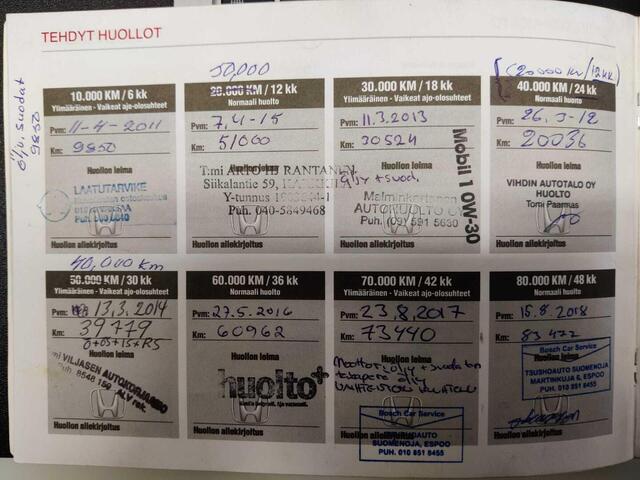 TEHDYT HUOLLOT
öljy. suodat
9850
10.000 KM / 6 kk
Ylimääräinen - Vaikeat ajo-olosuhteet
Pvm: 11-4-2011
Km: 9850
Huollon leima
LAATUTARVIKE
Huollon allekirjoitus
50,000
20.000 KM / 12 kk
Normaali huolto
Pvm: 7.4-15
Km: 51000
Huollon leima
T:mi ARTO RANTANEN
Siikalantie 59,
Y-tunnus
Puh. 040-5849468
Huollon allekirjoitus
30.000 KM / 18 kk
Ylimääräinen - Vaikeat ajo-olosuhteet
Pvm: 11.3.2013
Km: 30524
Huollon leima
Öljy + suod.
Malminkartanon
AUTOHUOLTO OY
Puh. (09) 591 5630
Mobil 1 0W-30
Huollon allekirjoitus
(20000 km/12kk)
40.000 KM / 24 kk
Normaali huolto
Pvm: 26.3-12
Km: 20036
Huollon leima
VIHDIN AUTOTALO OY
HUOLTO
Tomi Paarmas
Huollon allekirjoitus
40,000 km
50.000 KM / 30 kk
Ylimääräinen - Vaikeat ajo-olosuhteet
Pvm: 13.3.2014
Km: 39779
Ö+ÖS+IS+RS
Huollon leima
VILJASEN AUTOKORJAAMO
Puh. 8548 159 ALV rek.
Huollon allekirjoitus
60.000 KM / 36 kk
Normaali huolto
Pvm: 27.5.2016
Km: 60962
Huollon leima
huolto+
Huollon allekirjoitus
70.000 KM / 42 kk
Ylimääräinen - Vaikeat ajo-olosuhteet
Pvm: 23.8.2017
Km: 73440
Huollon leima
Moottoriöljy + suodatin
Bosch Car Service
TSUSHOAUTO
SUOMENOJA, ESPOO
PUH. 010 851 8455
Huollon allekirjoitus
80.000 KM / 48 kk
Normaali huolto
Pvm: 15.8.2018
Km: 83477
Huollon leima
Bosch Car Service
TSUSHOAUTO SUOMENOJA
MARTINKUJA 6, ESPOO
PUH. 010 851 8455
Huollon allekirjoitus